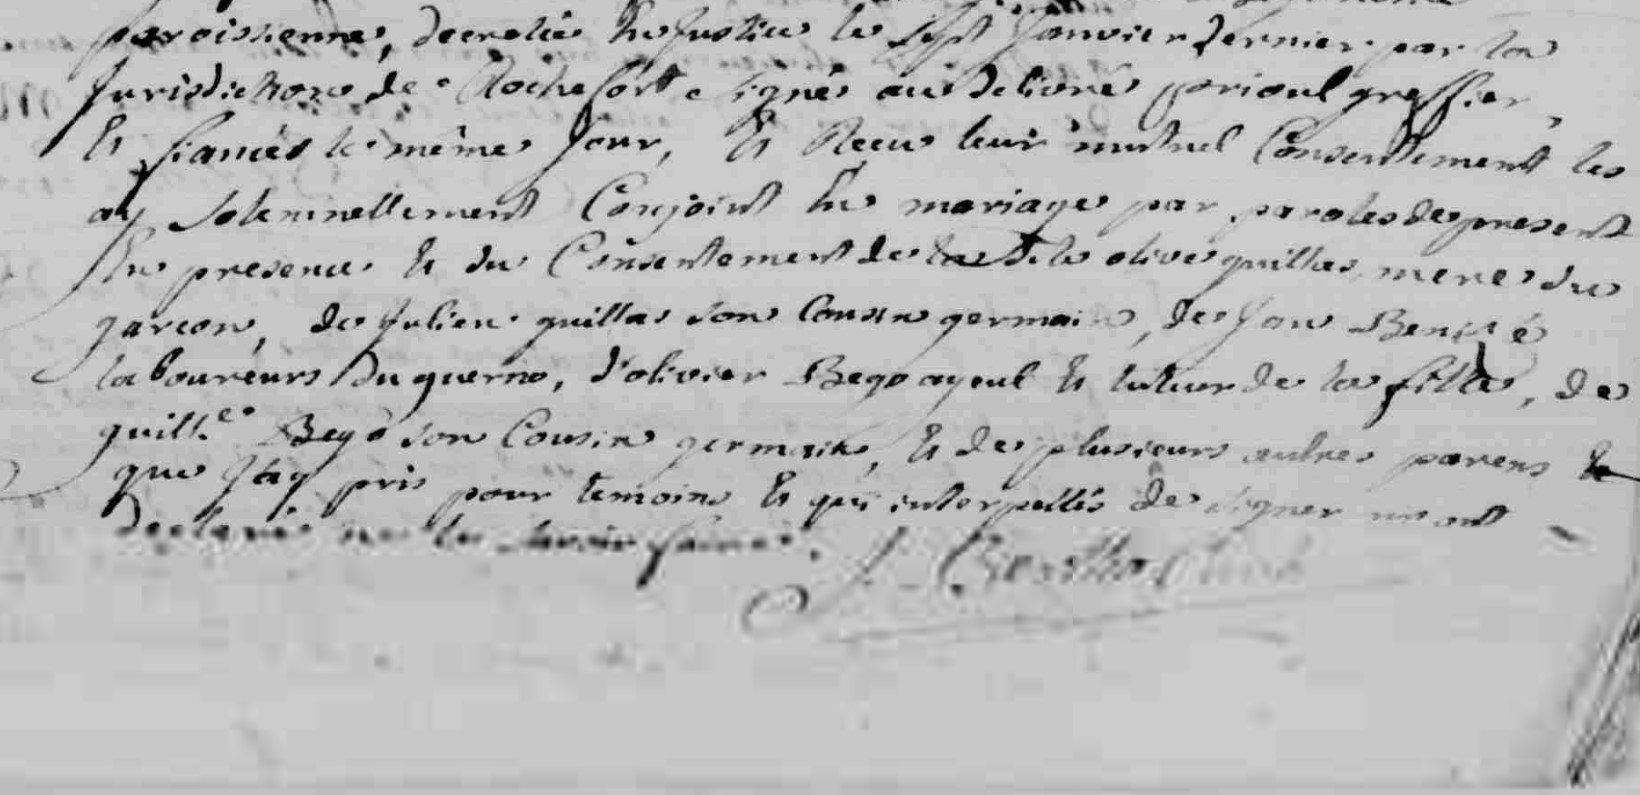 paroissienne, decretée En Justice le sept Janvier dernier par la
Jurisdiction de Rochefort signé au delivré prioul greffier,
Et fiancés le même Jour, Et Reçu leur mutuel Consentement les
ay solemnellement Conjoint En mariage par paroles de present
En presence Et du Consentement de olive guillas mere du
garcon, de Julien guillas son Cousin germain, de Jan
laboureurs du guerno, d'olivier Bego ayeul Et tuteur de la fille, de
guill.e Bego son Cousin germain, Et de plusieurs autres parens
que J'ay pris pour temoins Et qui interpellés de signer m'ont
declaré ne le savoir faire.